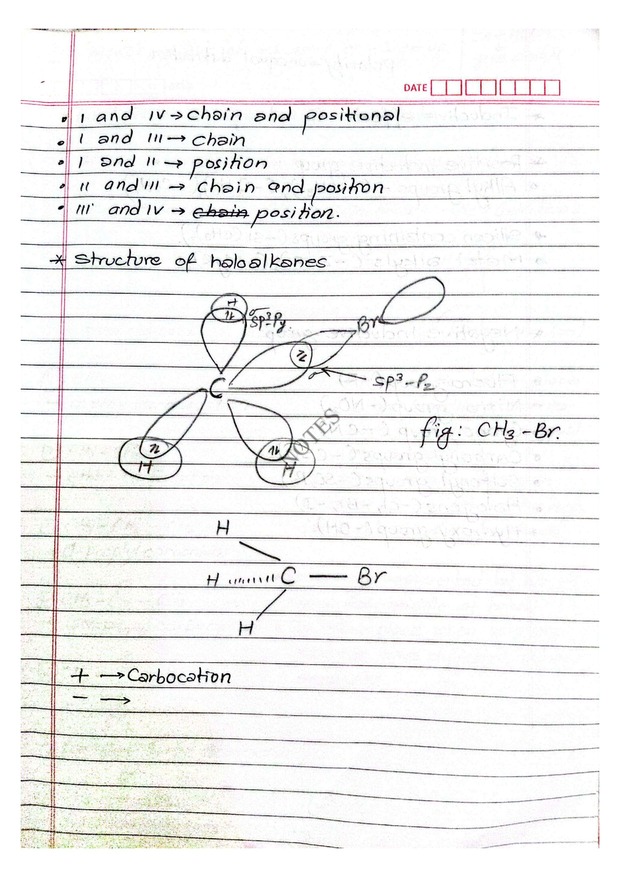 DATE
• I and IV → chain and positional
• I and III → chain
• I and II → position
• II and III → chain and position
• III and IV → chain position.
* Structure of haloalkanes
H
sp³-Py
Br
C
sp³-Pz
H
H
NOTES
fig: CH3-Br.
H
H C — Br
H
+ → Carbocation
- →